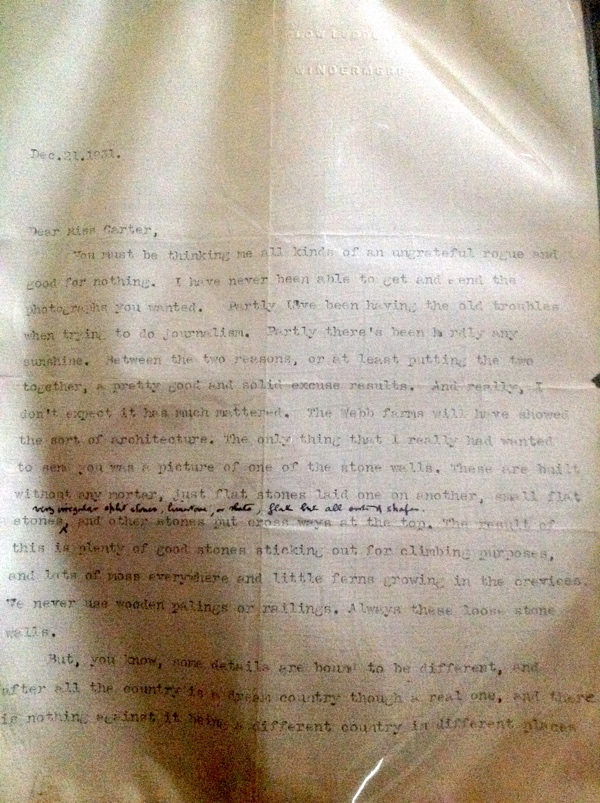 LOW LUDD
WINDERMERE
Dec.21.1931.
Dear Miss Carter,
You must be thinking me all kinds of an ungrateful rogue and
good for nothing. I have never been able to get and send the
photographs you wanted. Partly I've been having the old troubles
when trying to do journalism. Partly there's been h rdly any
sunshine. Between the two reasons, or at least putting the two
together, a pretty good and solid excuse results. And really, I
don't expect it has much mattered. The Webb farms will have showed
the sort of architecture. The only thing that I really had wanted
to sem you was a picture of one of the stone walls. These are built
without any mortar, just flat stones laid one on another, small flat
very irregular split stones, limestone, or slate, flat but all sorts of shapes.
stones, and other stones put cross ways at the top. The result of
this is plenty of good stones sticking out for climbing purposes,
and lots of moss everywhere and little ferns growing in the crevices.
We never use wooden palings or railings. Always these loose stone
walls.
But, you know, some details are bound to be different, and
after all the country is a dream country though a real one, and there
is nothing against it being a different country in different places